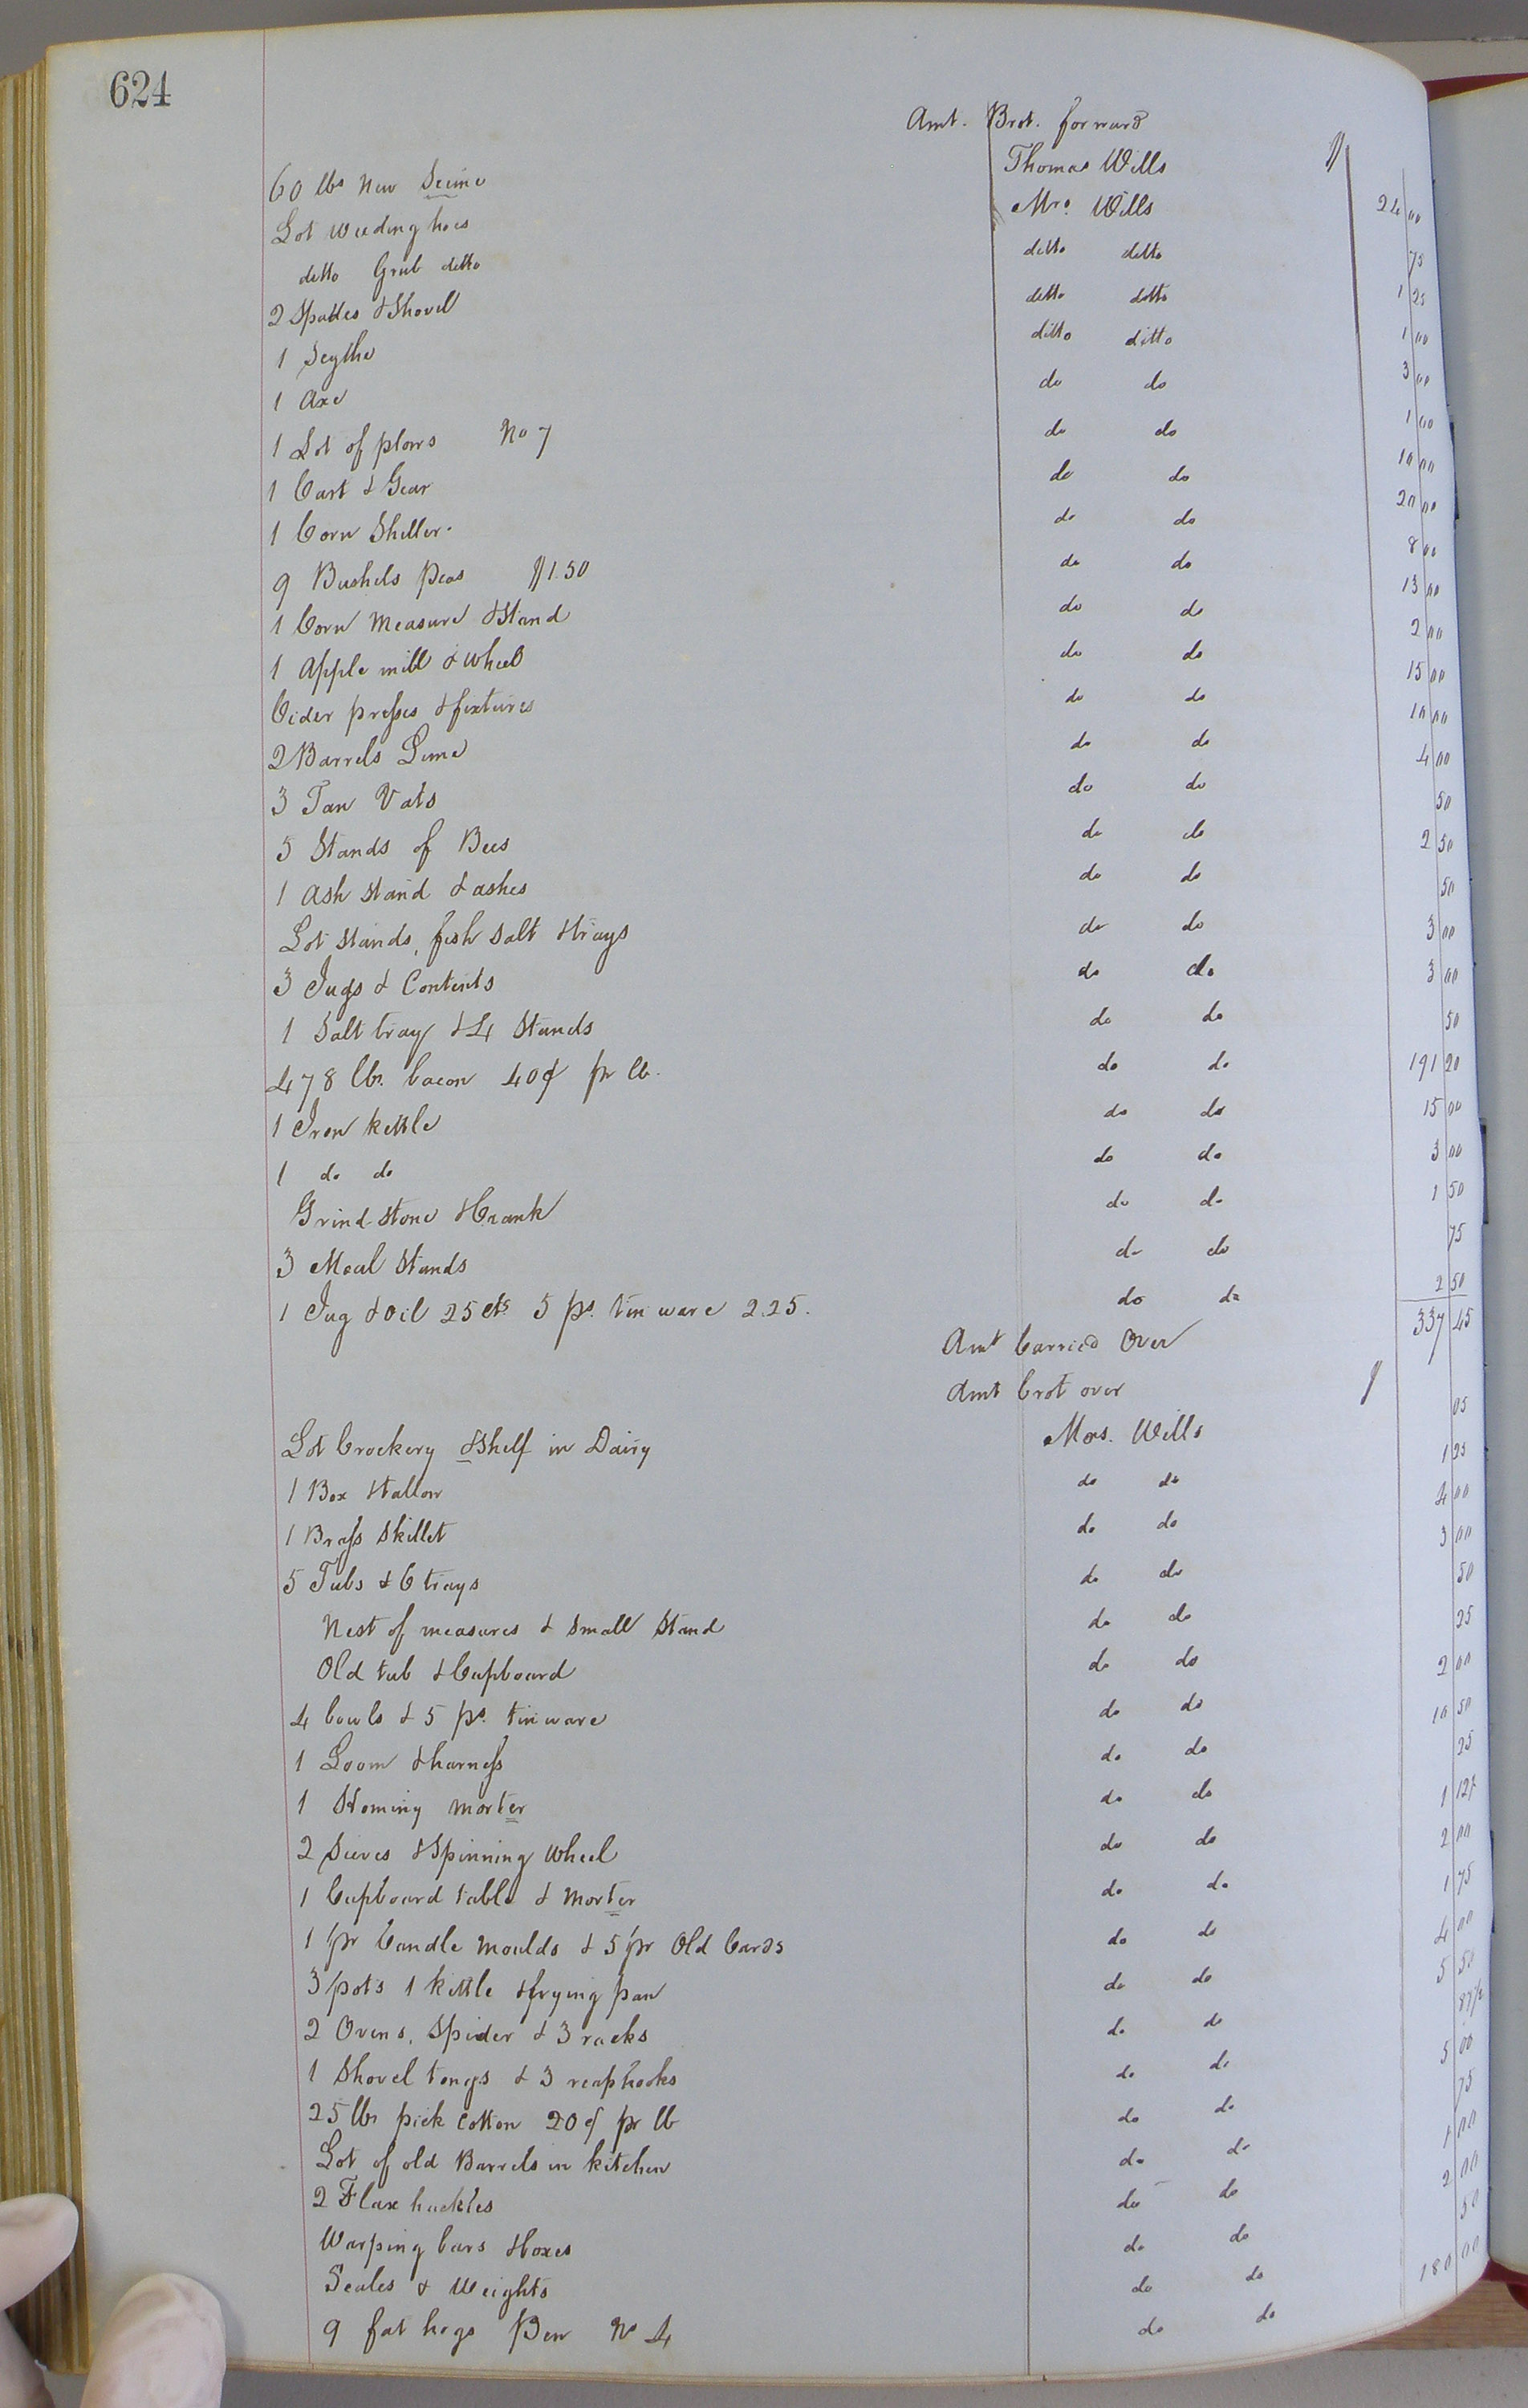 624
Amt. Brot. forward $
60 lbs New Seine Thomas Wills 24 00
Lot weeding hoes Mrs. Wills 75
ditto Grub ditto ditto ditto 1 25
2 Spades & Shovel ditto ditto 1 00
1 Scythe ditto ditto 3 00
1 Axe do do 1 00
1 Lot of plows No 7 do do 10 00
1 Cart & Gear do do 20 00
1 Corn Sheller. do do 8 00
9 Bushels Peas $1.50 do do 13 00
1 Corn Measure & Stand do do 2 00
1 Apple mill & wheel do do 15 00
Cider presses & fixtures do do 10 00
2 Barrels Lime do do 4 00
3 Tan Vats do do 50
5 Stands of Bees do do 2 50
1 Ash stand & ashes do do 50
Lot stands, fish salt & trays do do 3 00
3 Jugs & Contents do do 3 00
1 Salt tray & 4 Stands do do 50
478 lbs. bacon 40¢ pr lb. do do 191 20
1 Iron kettle do do 15 00
1 do do do do 3 00
Grind stone & Crank do do 1 50
3 Meal Stands do do 75
1 Jug & Oil 25 cts 5 ps. tin ware 2.25. do do 2 50
Amt Carried Over 337 45
Amt brot over $
Lot Crockery & Shelf in Dairy Mrs. Wills 05
1 Box & tallow do do 1 25
1 Brass Skillet do do 4 00
5 Tubs & 6 trays do do 3 00
Nest of measures & small Stand do do 50
Old tub & Cupboard do do 25
4 bowls & 5 ps. tin ware do do 2 00
1 Loom & harness do do 10 50
1 Homing morter do do 25
2 Sieves & Spinning Wheel do do 1 12½
1 Cupboard table & morter do do 2 00
1 pr Candle moulds & 5 pr Old Cards do do 1 75
3 pots 1 kettle & frying pan do do 4 00
2 Ovens, Spider & 3 racks do do 5 50
1 Shovel tongs & 3 reaphooks do do 87½
25 lbs pick cotton 20¢ pr lb do do 5 00
Lot of old Barrels in kitchen do do 75
2 Flax hackles do do 1 00
Warping bars & boxes do do 2 00
Scales & Weights do do 50
9 fat hogs Pen No 4 do do 180 00